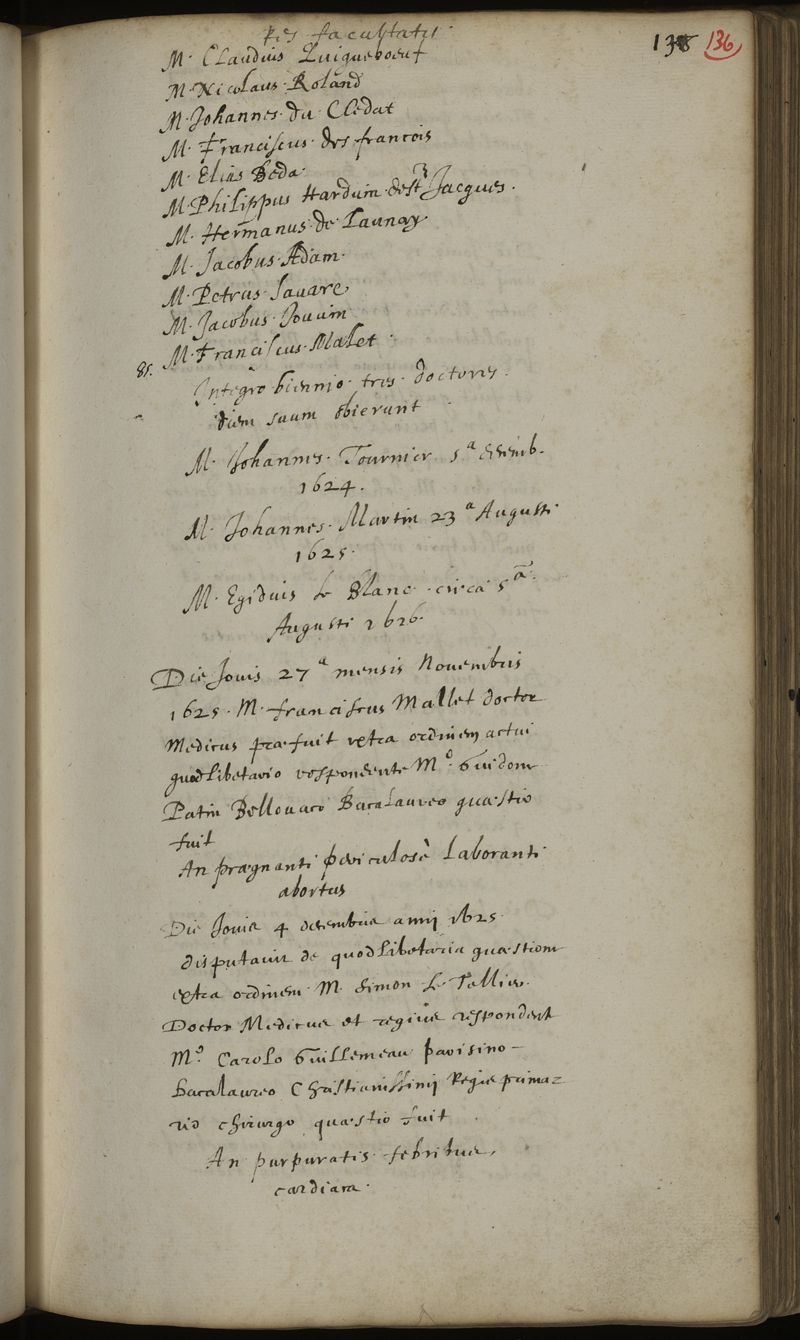 Res facultatis 138 136
M. Claudius Quiqueboeuf
M. Nicolaus Roland
M. Johannes du Cledat
M. Franciscus des francois
M. Elias Beda
M. Philippus Harduin de St Jacques.
M. Hermanus de Launay
M. Jacobus Adam
M. Petrus Sauare
M. Jacobus Jouuin
81. M. Franciscus Malet
Integro biennio tres doctores
diem suum obierunt
M. Johannes Tournier 5a decemb.
1624.
M. Johannes Martin 23a Augusti
1625.
M. Egidius le Blanc circa 5a
Augusti 1626.
Die Jouis 27a mensis Nouembris
1625. M. franciscus Mallet doctor
Medicus praefuit extra ordinem actui
quodlibetario respondente Mo. Guidone
Patin Bellouaco Bacalaureo quaestio
fuit
An praegnanti periculosè laboranti
abortus
Die Jouis 4 decembris anij 1625
disputauit de quodlibetaria quaestione
extra ordinem M. Simon le Tellier
Doctor Medicus et regius respondente
Mo. Carolo Guillemeau parisino
Bacalaureo Christianissimij Regis prima=
rio chirurgo quaestio fuit
An purpuratis febribus,
cardiaca.